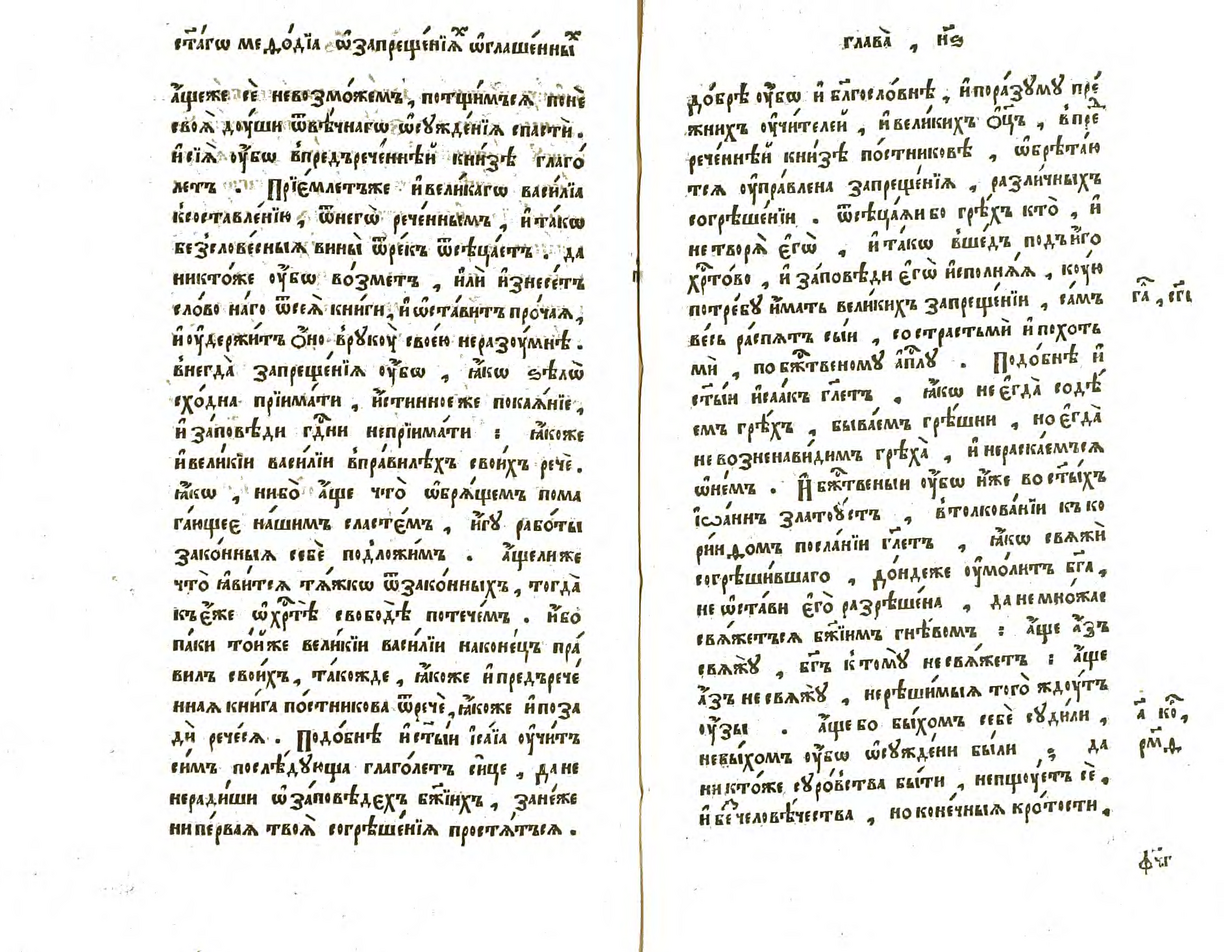 ст҃а́гѡ меѳо́дїа ѡ҆запреще́нїѧⷯ ѡ҆глаше́нныⷯ
а҆́щеже сѐ невозмо́жемъ, потщи́мъсѧ понѐ
своѧ̀ доу́ши ѿвѣ́чнагѡ ѡ҆сужде́нїѧ спастѝ.
и҆сїѧ̀ оу҆̀бѡ впредърече́ннѣй кни́зѣ глаго́
летъ . Прїе́млетъже и҆вели́кагѡ васи́лїа
ксоставле́нїю, ѿнегѡ̀ рече́ннымъ, и҆та́кѡ
безслове́сныѧ вины̀ ѿре́къ ѿсѣца́етъ . да
никто́же оу҆̀бѡ во́зметъ, и҆лѝ и҆знесе́тъ
сло́во на́го ѿсеѧ̀ кни́ги, и҆ѡ҆ста́витъ про́чаѧ,
и҆оу҆держи́тъ о҆́но вруко́у свое́ю неразоу́мнѣ.
внегда̀ запреще́нїѧ оу҆̀бѡ , ꙗ҆́кѡ ѕѣлѡ̀
схо́дна прїима́ти , и҆́стинноеже покаѧ́нїе,
и҆за́повѣди гдⷭ҇ни непрїима́ти : ꙗ҆́коже
и҆вели́кїи васи́лїи впра́вилѣхъ свои́хъ речѐ.
ꙗ҆́кѡ , ни́бо а҆́ще что̀ ѡ҆брѧ́щемъ пома
га́ющее на́шимъ сласте́мъ , и҆́гу рабо́ты
зако́нныѧ себѐ подло́жимъ . а҆́щелиже
что̀ ꙗ҆ви́тсѧ тѧ́жкѡ ѿзако́нныхъ , тогда̀
къе҆́же ѡ҆хрⷭ҇тѣ̀ свобо́дѣ потече́мъ . и҆́бо
па́ки то́йже вели́кїи васи́лїи наконе́цъ пра́
вилъ свои́хъ, та́кожде, ꙗ҆́коже и҆предърече́
ннаѧ кни́га по́стникова ѿречѐ, ꙗ҆́коже и҆поза
дѝ рече́сѧ. Подо́бнѣ и҆ст҃ы́и і҆са́їа оу҆чи́тъ
си́мъ послѣ́дующа глаго́летъ си́це , да не
нерадѝши ѡ҆за́повѣдехъ бж҃їихъ , зане́же
ни пе́рваѧ твоѧ̀ согрѣше́нїѧ простѧ́тъсѧ .
глава̀ , н҃ѕ
до́брѣ оу҆̀бѡ и҆ блг҃осло́внѣ , и҆пора́зуму пре́
жнихъ оу҆чи́телей , и҆вели́кихъ ѻ҆ц҃ъ , впреⷣ
рече́ннѣй кни́зѣ по́стниковѣ , ѡ҆брѣта́ю
тсѧ оу҆пра́влена запреще́нїѧ , разли́чныхъ
согрѣше́нїи . ѿсѣца́ѧи бо грѣ́хъ кто̀ , и҆
не творѧ̀ є҆гѡ̀ , и҆та́кѡ вше́дъ подъи҆́го
хрⷭ҇то́во , и҆ за́повѣди є҆гѡ̀ и҆сполнѧ́ѧ , ку́ю
потре́бу и҆́мать вели́кихъ запреще́нїи , са́мъ
ве́сь распѧ́тъ сы́и , со страстьмѝ и҆ похоть
мѝ , по бжⷭ҇твеному а҆пⷭ҇лу . Подо́бнѣ и҆
ст҃ы́и и҆саа́къ гл҃етъ , ꙗ҆́кѡ не є҆гда̀ содѣ́
емъ грѣ́хъ , быва́емъ грѣ́шни , но є҆гда̀
не возненави́димъ грѣха̀ , и҆ нераска́емъсѧ
ѡ҆не́мъ . И҆ бжⷭ҇твеныи оу҆̀бѡ и҆́же во ст҃ы́хъ
і҆ѡа́ннъ златоу́стъ , втолкова́нїи къ ко
ри́нѳомъ посла́нїи гл҃етъ , ꙗ҆́кѡ свѧжѝ
согрѣши́вшаго , до́ндеже оу҆мо́литъ бг҃а ,
не ѡ҆ста́ви є҆го̀ разрѣше́на , да не мно́жае
свѧ́жетьсѧ бж҃їимъ гнѣ́вомъ : а҆́ще а҆́зъ
свѧжу̀ , бг҃ъ ктому̀ не свѧ́жетъ : а҆́ще
а҆́зъ не свѧжу̀ , нерѣши́мыѧ того̀ ждоу́тъ
оу҆́зы . а҆́ще бо бы́хомъ себѐ суди́ли ,
не бы́хомъ оу҆̀бѡ ѡ҆сужде́ни бы́ли ; да
никто́же суро́вства бы́ти , непщоу́етъ сѐ ,
и҆ бесчеловѣ́чества , но коне́чныѧ кро́тости .
га҃ , є҃
а҃ ко́ ,
рм҃ѳ
фч҃г